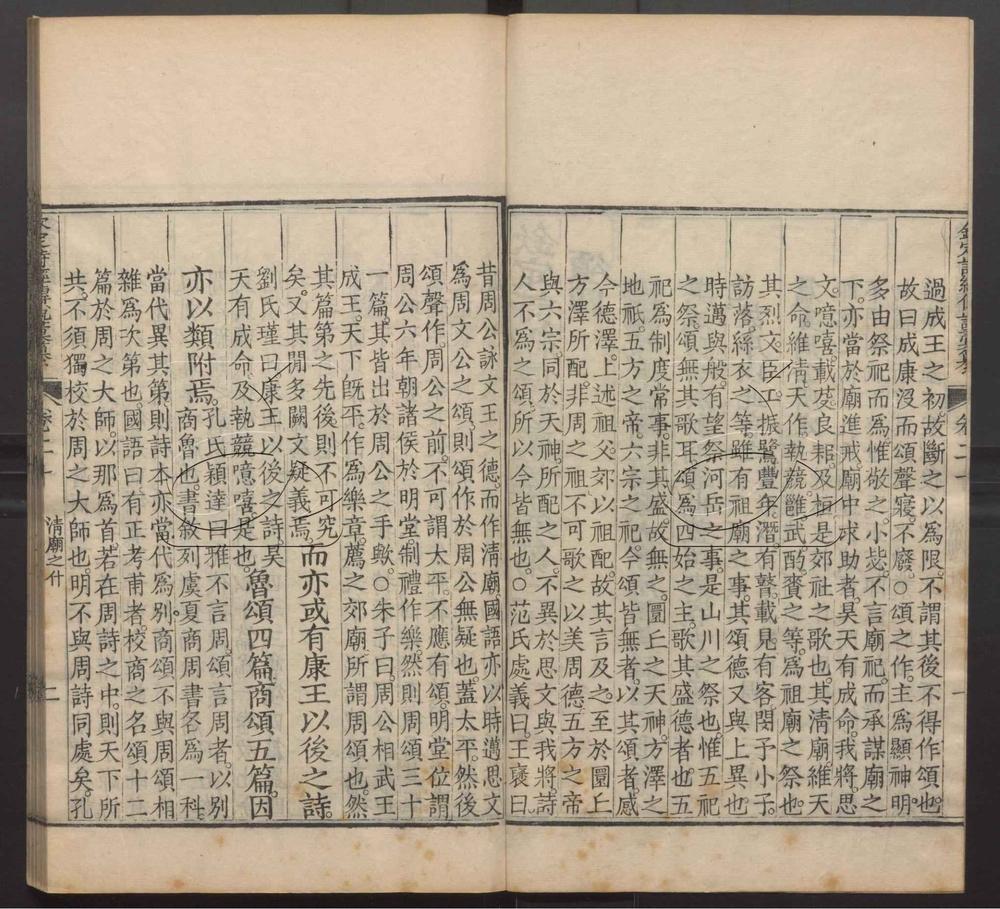 過成王之初。故斷之以爲限。不謂其後不得作頌也。
故曰成康沒而頌聲寢。不廢。○頌之作。主爲顯神明。
多由祭祀而爲。惟敬之。小毖。不言廟祀。而承謀廟之
下。亦當於廟進戒。廟中求助者。昊天有成命。我將。思
文。噫嘻。載芟。良耜。及桓。是郊社之歌也。其清廟。維天
之命。維清。天作。執競。雝。武。酌。賚之等。爲祖廟之祭也。
其烈文。臣工。振鷺。豐年。潛。有瞽。載見。有客。閔予小子。
訪落。絲衣之等。雖有祖廟之事。其頌德又與上異也。
時邁與般。有望祭河岳之事。是山川之祭也。惟五祀
之祭。頌無其歌耳。頌爲四始之主。歌其盛德者也。五
祀爲制度常事。非其盛。故無之。圜丘之天神。方澤之
地祇。五方之帝。六宗之祀。今頌皆無者。以其頌者。感
今德澤。上述祖父。郊以祖配。故其言及之。至於圜丘
方澤所配。非周之祖。不可歌之以美周德。五方之帝
與六宗。同於天神。所配之人。不異於思文與我將。詩
人不爲之頌。所以今皆無也。○范氏處義曰。王襃曰。
昔周公詠文王之德。而作清廟。國語亦以時邁思文
爲周文公之頌。則頌作於周公無疑也。蓋太平。然後
頌聲作。周公之前。不可謂太平。不應有頌。明堂位謂
周公六年。朝諸侯於明堂。制禮作樂。然則周頌三十
一篇。其皆出於周公之手歟。○朱子曰。周公相武王
成王。天下旣平。作爲樂章。薦之郊廟。所謂周頌也。然
其篇第之先後。則不可究
矣。又其閒多闕文疑義焉。而亦或有康王以後之詩。
劉氏瑾曰。康王以後之詩。昊
天有成命。及執競。噫嘻。是也。魯頌四篇。商頌五篇。因
亦以類附焉。孔氏穎達曰。雅不言周。頌言周者。以別
商魯也。書敘列虞夏商周書。各爲一科。
當代異其第。則詩本亦當代爲別。商頌不與周頌相
雜爲次第也。國語曰。有正考甫者。校商之名頌十二
篇於周之大師。以那爲首。若在周詩之中。則天下所
共。不須獨校於周之大師也。明不與周詩同處矣。孔
清廟之什
二